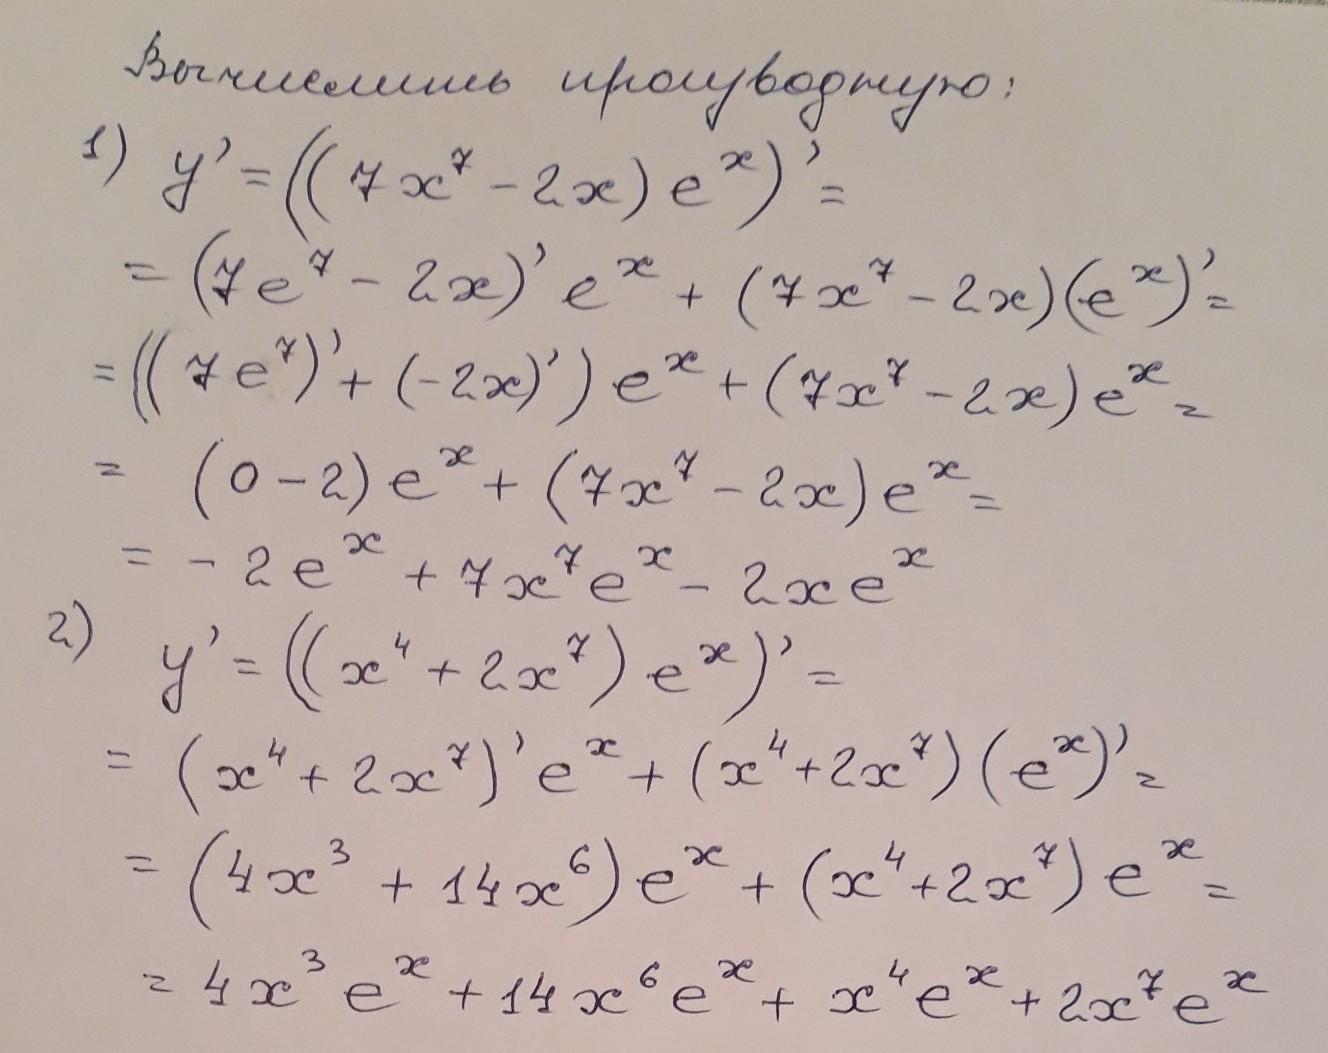 Вычислить производную:
1) y' = ((7x⁷ - 2x) eˣ)' =
= (7e⁷ - 2x)' eˣ + (7x⁷ - 2x)(eˣ)' =
= ((7e⁷)' + (-2x)') eˣ + (7x⁷ - 2x) eˣ =
= (0 - 2) eˣ + (7x⁷ - 2x) eˣ =
= - 2eˣ + 7x⁷eˣ - 2xeˣ
2) y' = ((x⁴ + 2x⁷) eˣ)' =
= (x⁴ + 2x⁷)' eˣ + (x⁴ + 2x⁷) (eˣ)' =
= (4x³ + 14x⁶) eˣ + (x⁴ + 2x⁷) eˣ =
= 4x³ eˣ + 14x⁶eˣ + x⁴eˣ + 2x⁷eˣ